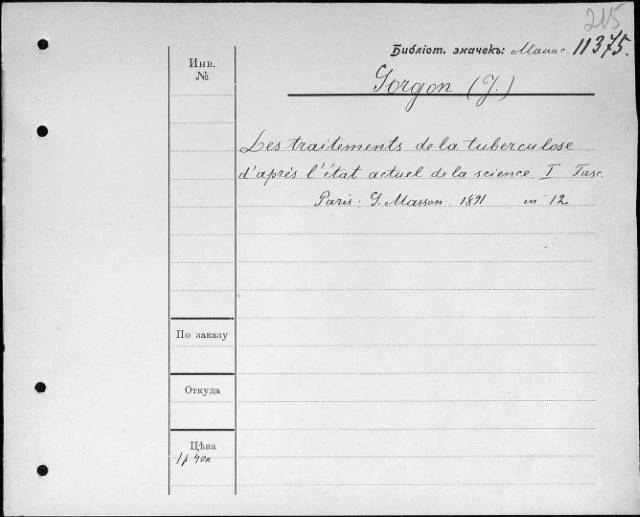 215
Библіот. значекъ: 11375.
Инв.
№
Gorgon (J.)
Les traitements de la tuberculose
d'après l'état actuel de la science I Fasc.
Paris: G. Masson. 1891 in 12
По заказу
Откуда
Цѣна
1 р. 40 к